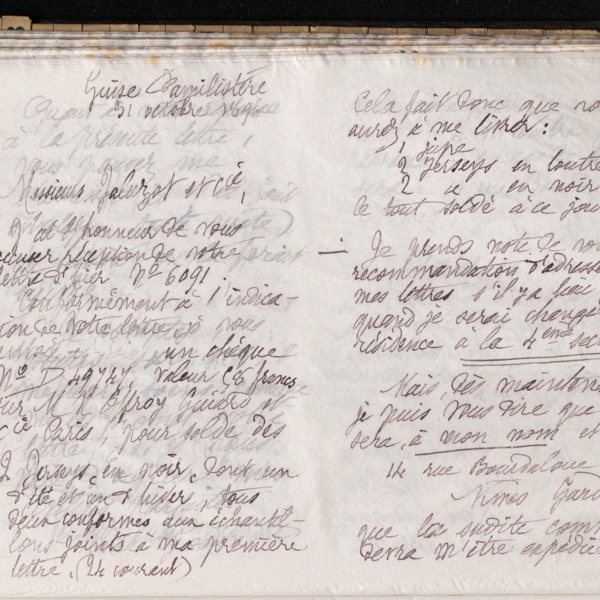 Guise Familistère
31 octobre 189
Messieurs Jaluzot et Cie,
J'ai l'honneur de vous
accuser réception de votre
lettre d'hier No 6091.
Conformément à l'indica-
tion de votre lettre, je vous
un chèque
No D 49747, valeur 58 francs
sur M M Offroy Guiard et
Cie Paris, pour solde des
2 Jerseys en noir, dont un
d'été et un d'hiver, tous
deux conformes aux échantil-
lons joints à ma première
lettre. (24 courant)
Cela fait donc que vo
aurez à me livrer :
1 jupe
2 Jerseys en loutre
2 d° en noir
le tout soldé à ce jou
— Je prends note de vo
recommandation d'adresse
mes lettres s'il y a lieu
quand je serai changé
résidence à la 4ème sec
Mais, dès maintena
je puis vous dire que
sera, à mon nom et
14 rue Bourdaloue
Nîmes Gard
que la susdite com
devra m'être expédié